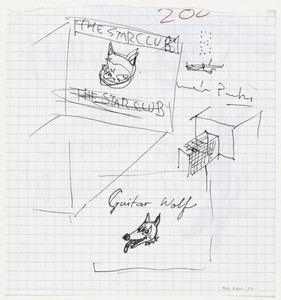 200
THE STAR CLUB
THE STAR CLUB
Guitar Wolf